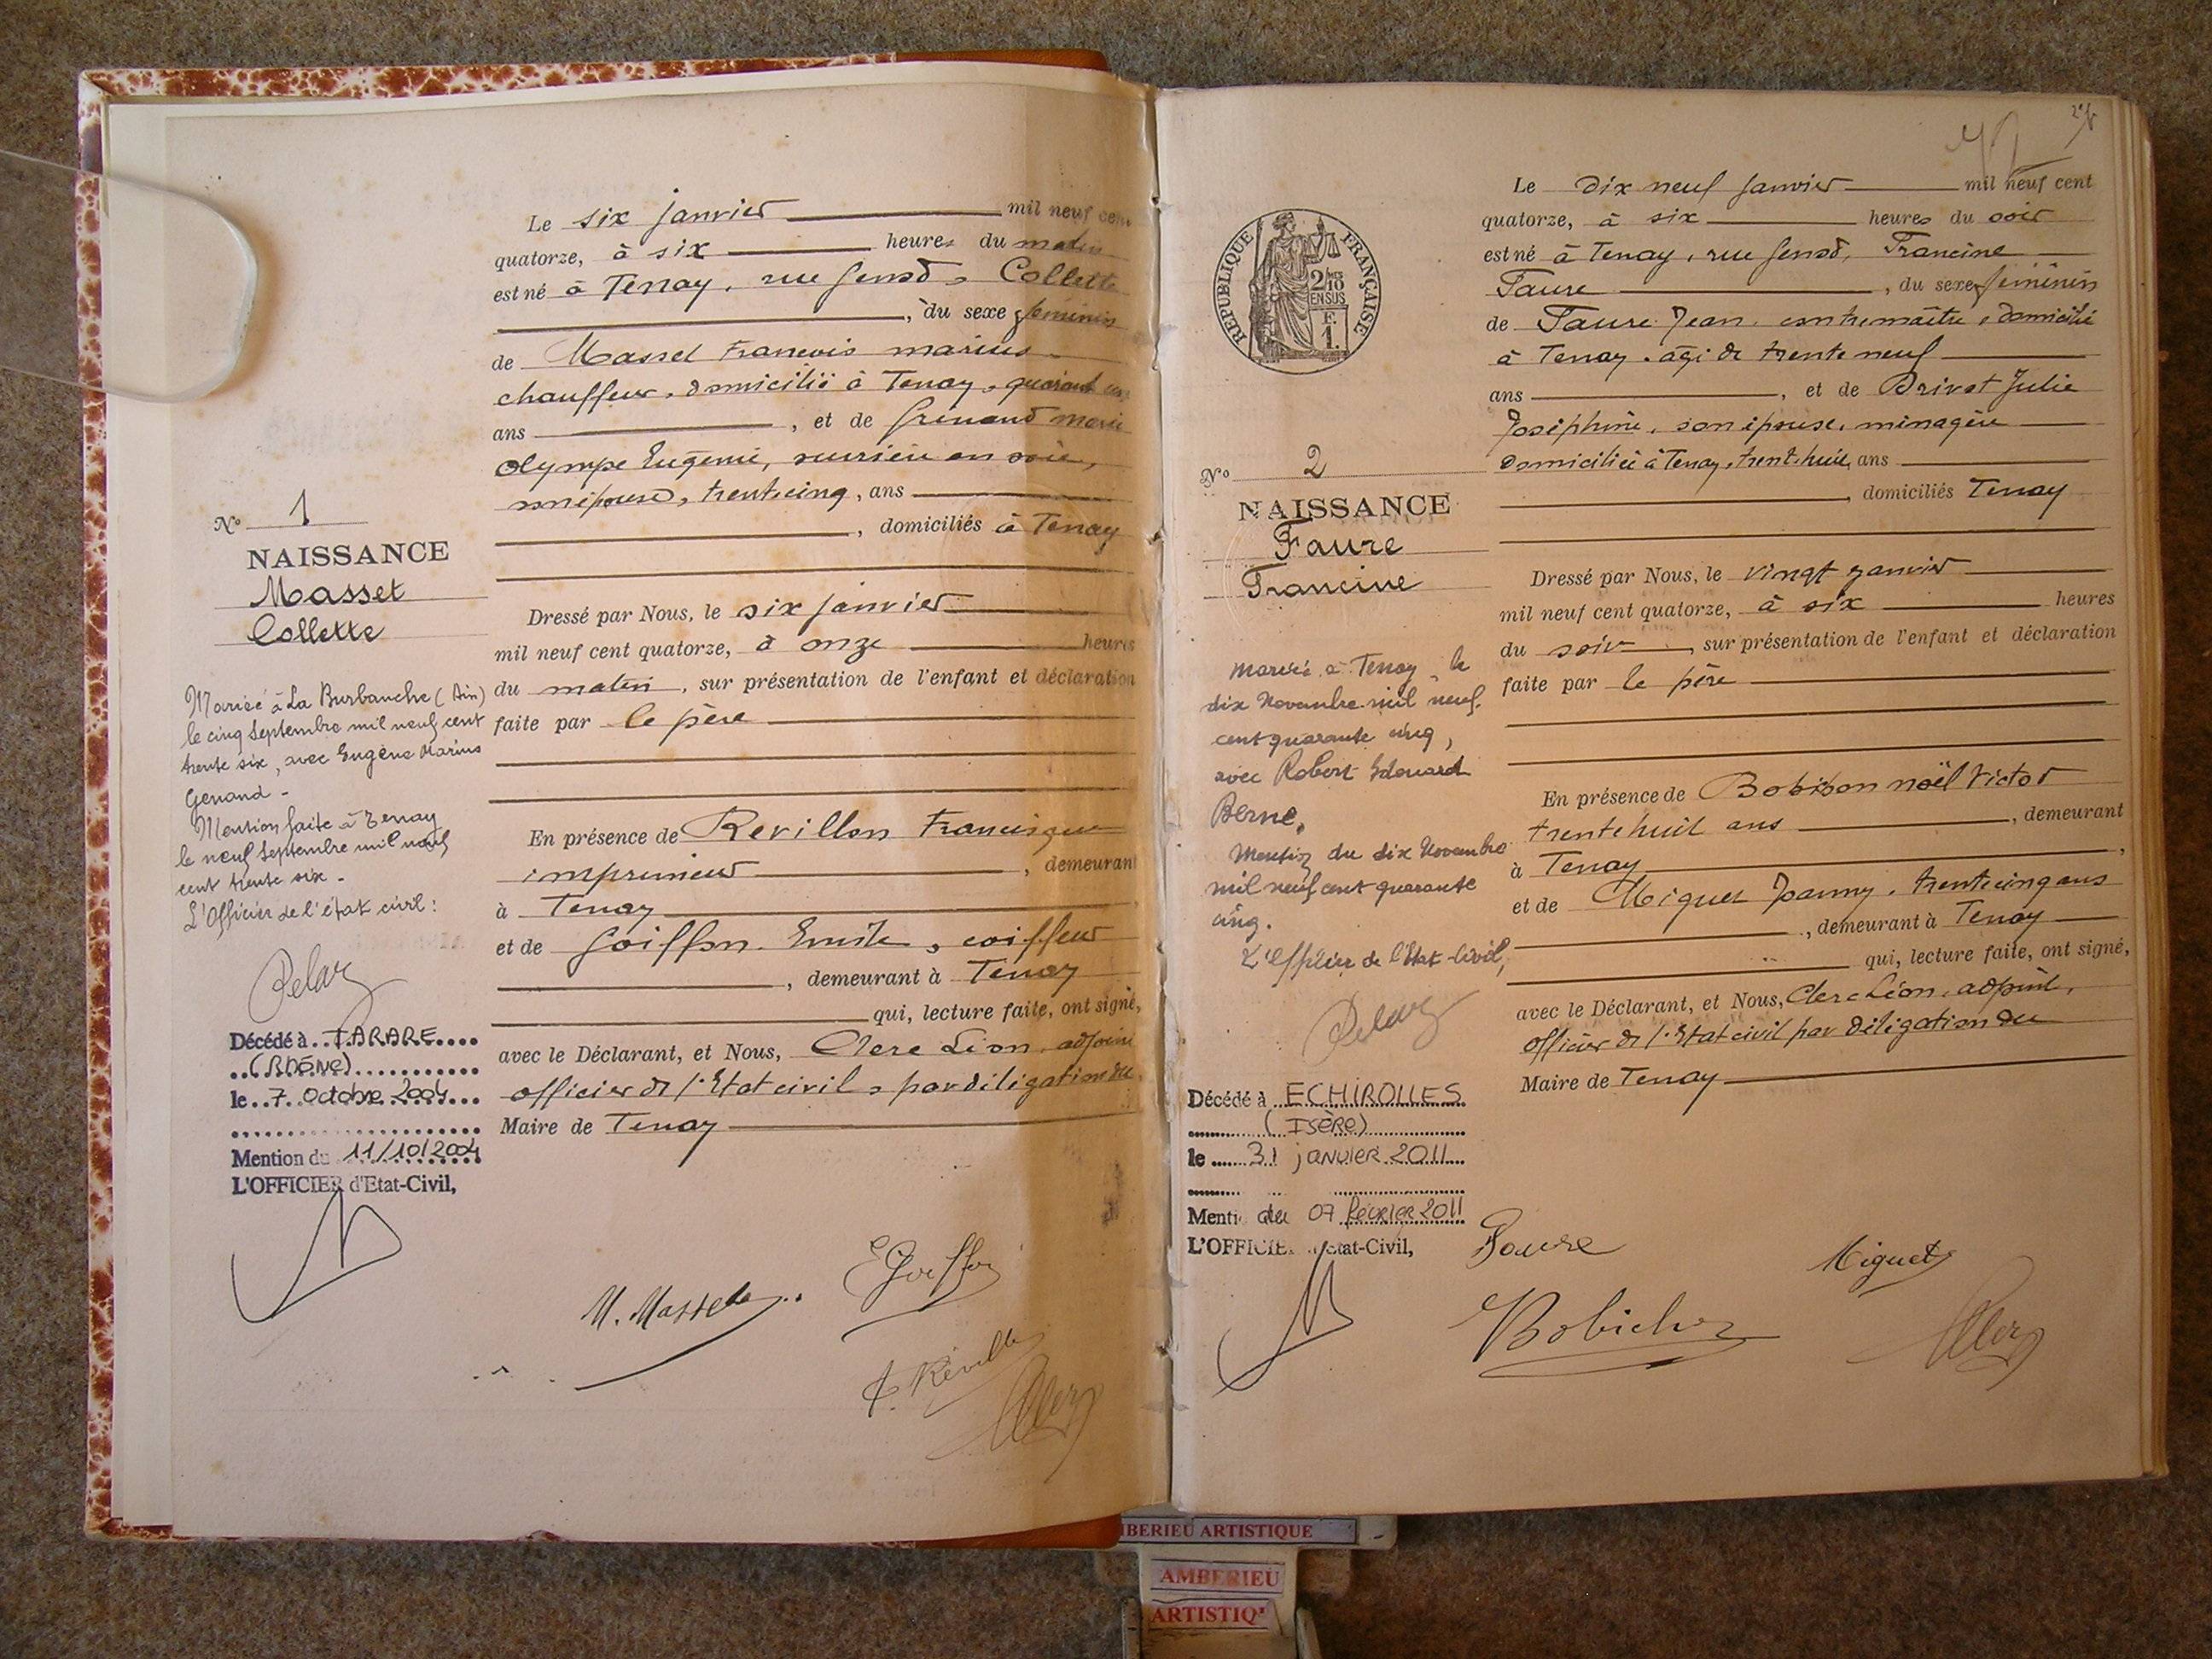 Le six janvier mil neuf cent
quatorze, à six heures du matin
est né à Tenay, rue Genod, Collette
, du sexe féminin
de Masset François marius
chauffeur, domicilié à Tenay, quarant un
ans , et de Grinand marie
olympe Eugénie, ouvrière en soie,
son épouse, trentecinq, ans
, domiciliés à Tenay
Dressé par Nous, le six janvier
mil neuf cent quatorze, à onze heures
du matin, sur présentation de l'enfant et déclaration
faite par le père
En présence de Revillon Francisque
imprimeur , demeurant
à Tenay
et de Goiffon Emile, coiffeur
, demeurant à Tenay
qui, lecture faite, ont signé,
avec le Déclarant, et Nous, Clerc Léon adjoint
officier de l'Etat civil, par déligation du
Maire de Tenay
No 1
NAISSANCE
Masset
Collette
Mariée à La Burbanche (Ain)
le cinq Septembre mil neuf cent
trente six, avec Eugène Marius
Genand -
Mention faite à Tenay
le neuf Septembre mil neuf
cent trente six -
L'Officier de l'état civil :
Pelaz
Décédé à TARARE
(RHÔNE)
le 7 Octobre 2004
Mention du 11/10/2004
L'OFFICIER d'Etat-Civil,
M. Masset
E Goiffon
F. Revillon
Clerc
2
Le Dix neuf janvier mil neuf cent
quatorze, à six heures du soir
est né à Tenay, rue Genod, Francine
Faure , du sexe féminin
de Faure Jean, contremaître, domicilié
à Tenay, âgé de trente neuf
ans , et de Drivet Julie
Joséphine, son épouse, ménagère
domiciliée à Tenay, trent-huit, ans
, domiciliés Tenay
Dressé par Nous, le vingt janvier
mil neuf cent quatorze, à six heures
du soir , sur présentation de l'enfant et déclaration
faite par le père
En présence de Bobichon noël Victor
trentehuit ans , demeurant
à Tenay ,
et de Miguet Joanny, trentecinq ans
, demeurant à Tenay
qui, lecture faite, ont signé,
avec le Déclarant, et Nous, Clerc Léon, adjoint,
officier de l'Etat civil par déligation du
Maire de Tenay
RÉPUBLIQUE FRANÇAISE
2/10
EN SUS
F.
1.
No 2
NAISSANCE
Faure
Francine
Mariée à Tenay, le
dix Novembre mil neuf
cent quarante cinq,
avec Robert Edouard
Berne,
Mention du dix Novembre
mil neuf cent quarante
cinq.
L'Officier de l'Etat-Civil,
Pelaz
Décédé à ECHIROLLES
(ISÈRE)
le 31 janvier 2011
Menti du 07 février 2011
L'OFFICIE Etat-Civil,
Faure
Miguet
Bobichon
Clerc
MBERIEU ARTISTIQUE
AMBERIEU
ARTISTIQ